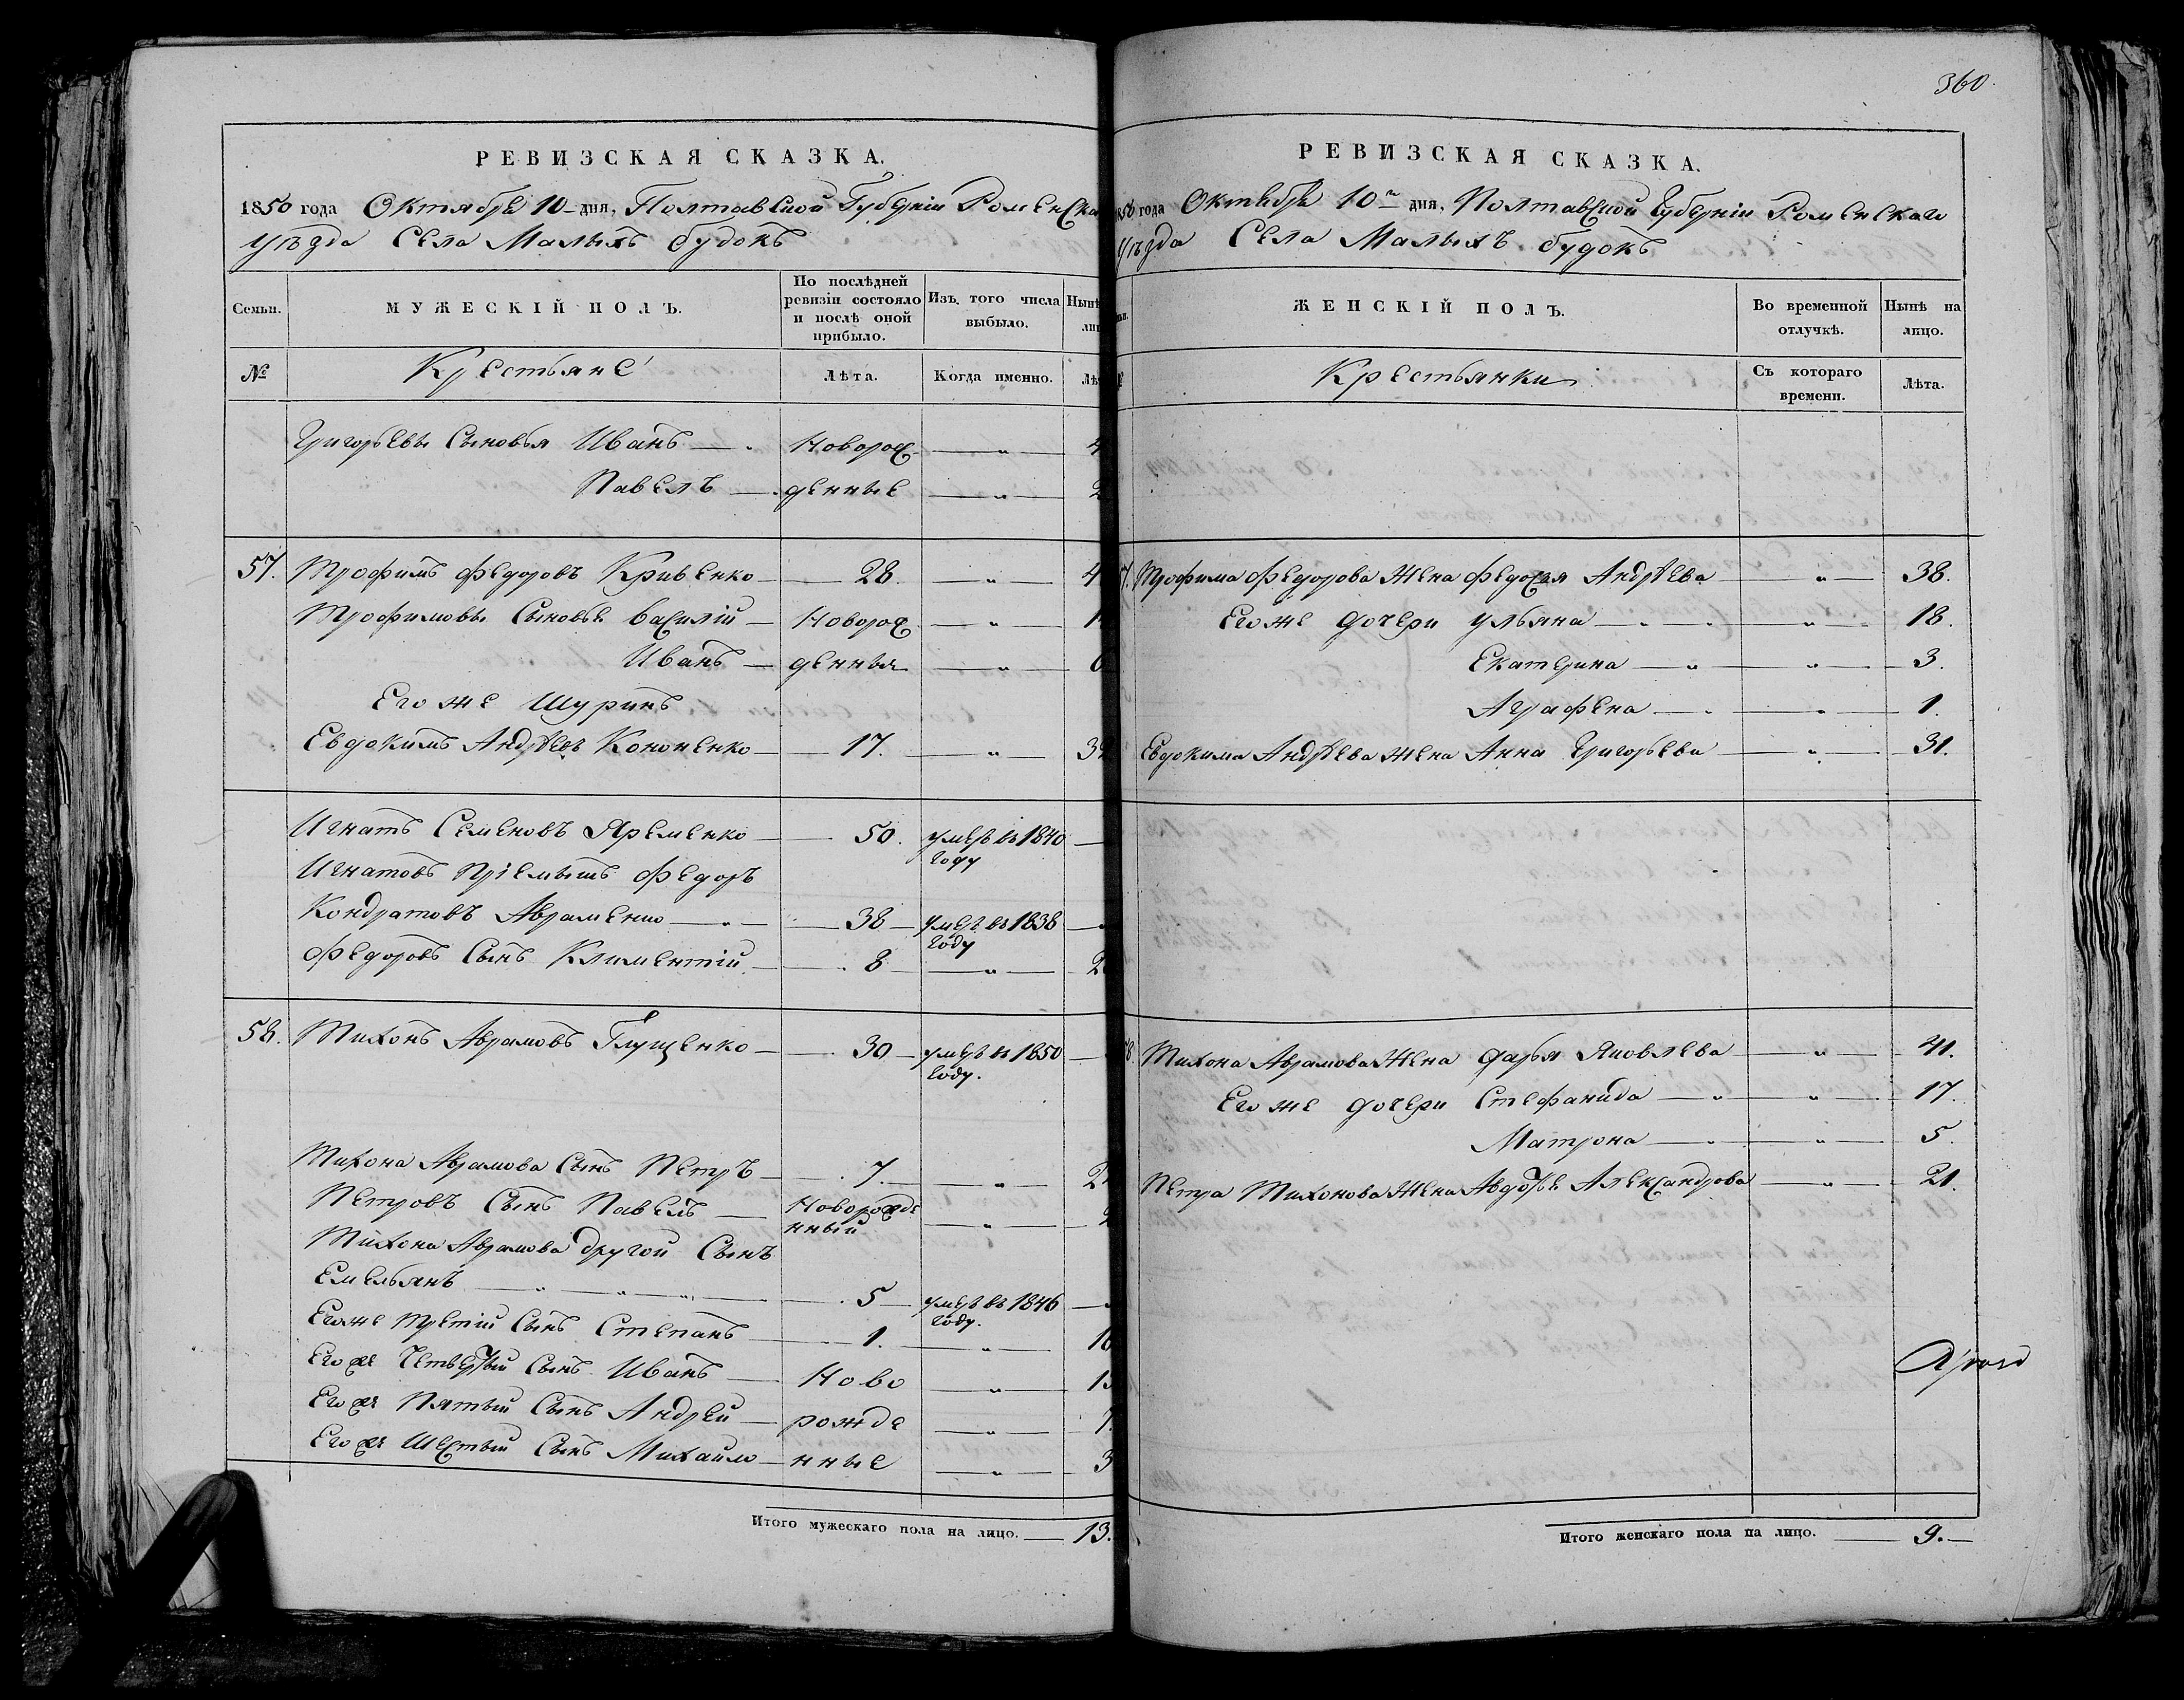 РЕВИЗСКАЯ СКАЗКА.
1850 года Октября 10 дня, Полтавской Губерніи Роменска
Уѣзда Села Малыхъ Будокъ
Семьи.
МУЖЕСКІЙ ПОЛЪ.
По послѣдней ревизіи состояло и послѣ оной прибыло.
Изъ того числа выбыло.
Нынѣ
№
Крестьяне
Лѣта.
Когда именно.
Григорьевы Сыновья Иванъ — Новорож — " — 4
Павелъ — денные — " — 2
57. Трофимъ Федоровъ Кривенко — 28. " — 4
Трофимовы Сыновье Василій — Новорож — " — 1
Иванъ — денныя — " — 6
Его же Шуринъ
Евдокимъ Андрѣевъ Кононенко — 17. — " — 3
Игнатъ Семеновъ Яременко — 50. умеръ въ 1840 —
году
Игнатовъ Пріемышъ Федоръ
Кондратовъ Авраменко — " — 38 — умеръ въ 1838 —
году
Федоровъ Сынъ Климентій — 8 — " — 2
58. Тихонъ Аврамовъ Глущенко — 30 — умеръ въ 1850 —
году.
Тихона Аврамова Сынъ Петръ — 7. — " — 2
Петровъ Сынъ Павелъ — Новорожде — " — 2
нный
Тихона Аврамова другой Сынъ
Емельянъ — " — " — " — 5 — умеръ въ 1846 —
году.
Его же Третій Сынъ Степанъ — 1. — " — 1
Его же Четвертый Сынъ Иванъ — Ново — " — 1
Его же Пятый Сынъ Андрей — рожде — " — 7
Его же Шестый Сынъ Михайло — нные — " — 3
Итого мужескаго пола на лицо. — 13.
360.
РЕВИЗСКАЯ СКАЗКА.
1850 года Октября 10 дня, Полтавской Губерніи Роменскаго
Уѣзда Села Малыхъ Будокъ
ЖЕНСКІЙ ПОЛЪ.
Во временной отлучкѣ.
Нынѣ на лицо.
Крестьянки
Съ котораго времени.
Лѣта.
7. Трофима Федорова Жена Федосья Андрѣева — " — 38.
Его же дочери Ульяна — " — " — " — 18.
Екатерина — " — " — 3.
Аграфена — " — " — 1.
Евдокима Андрѣева Жена Анна Григорьева — " — 31.
8. Тихона Аврамова Жена Дарья Яковлева — " — 41.
Его же дочери Стефанида — " — " — 17.
Матрона — " — " — 5.
Петра Тихонова Жена Авдотье Александрова — " — 21.
Итого женскаго пола на лицо. — 9. —